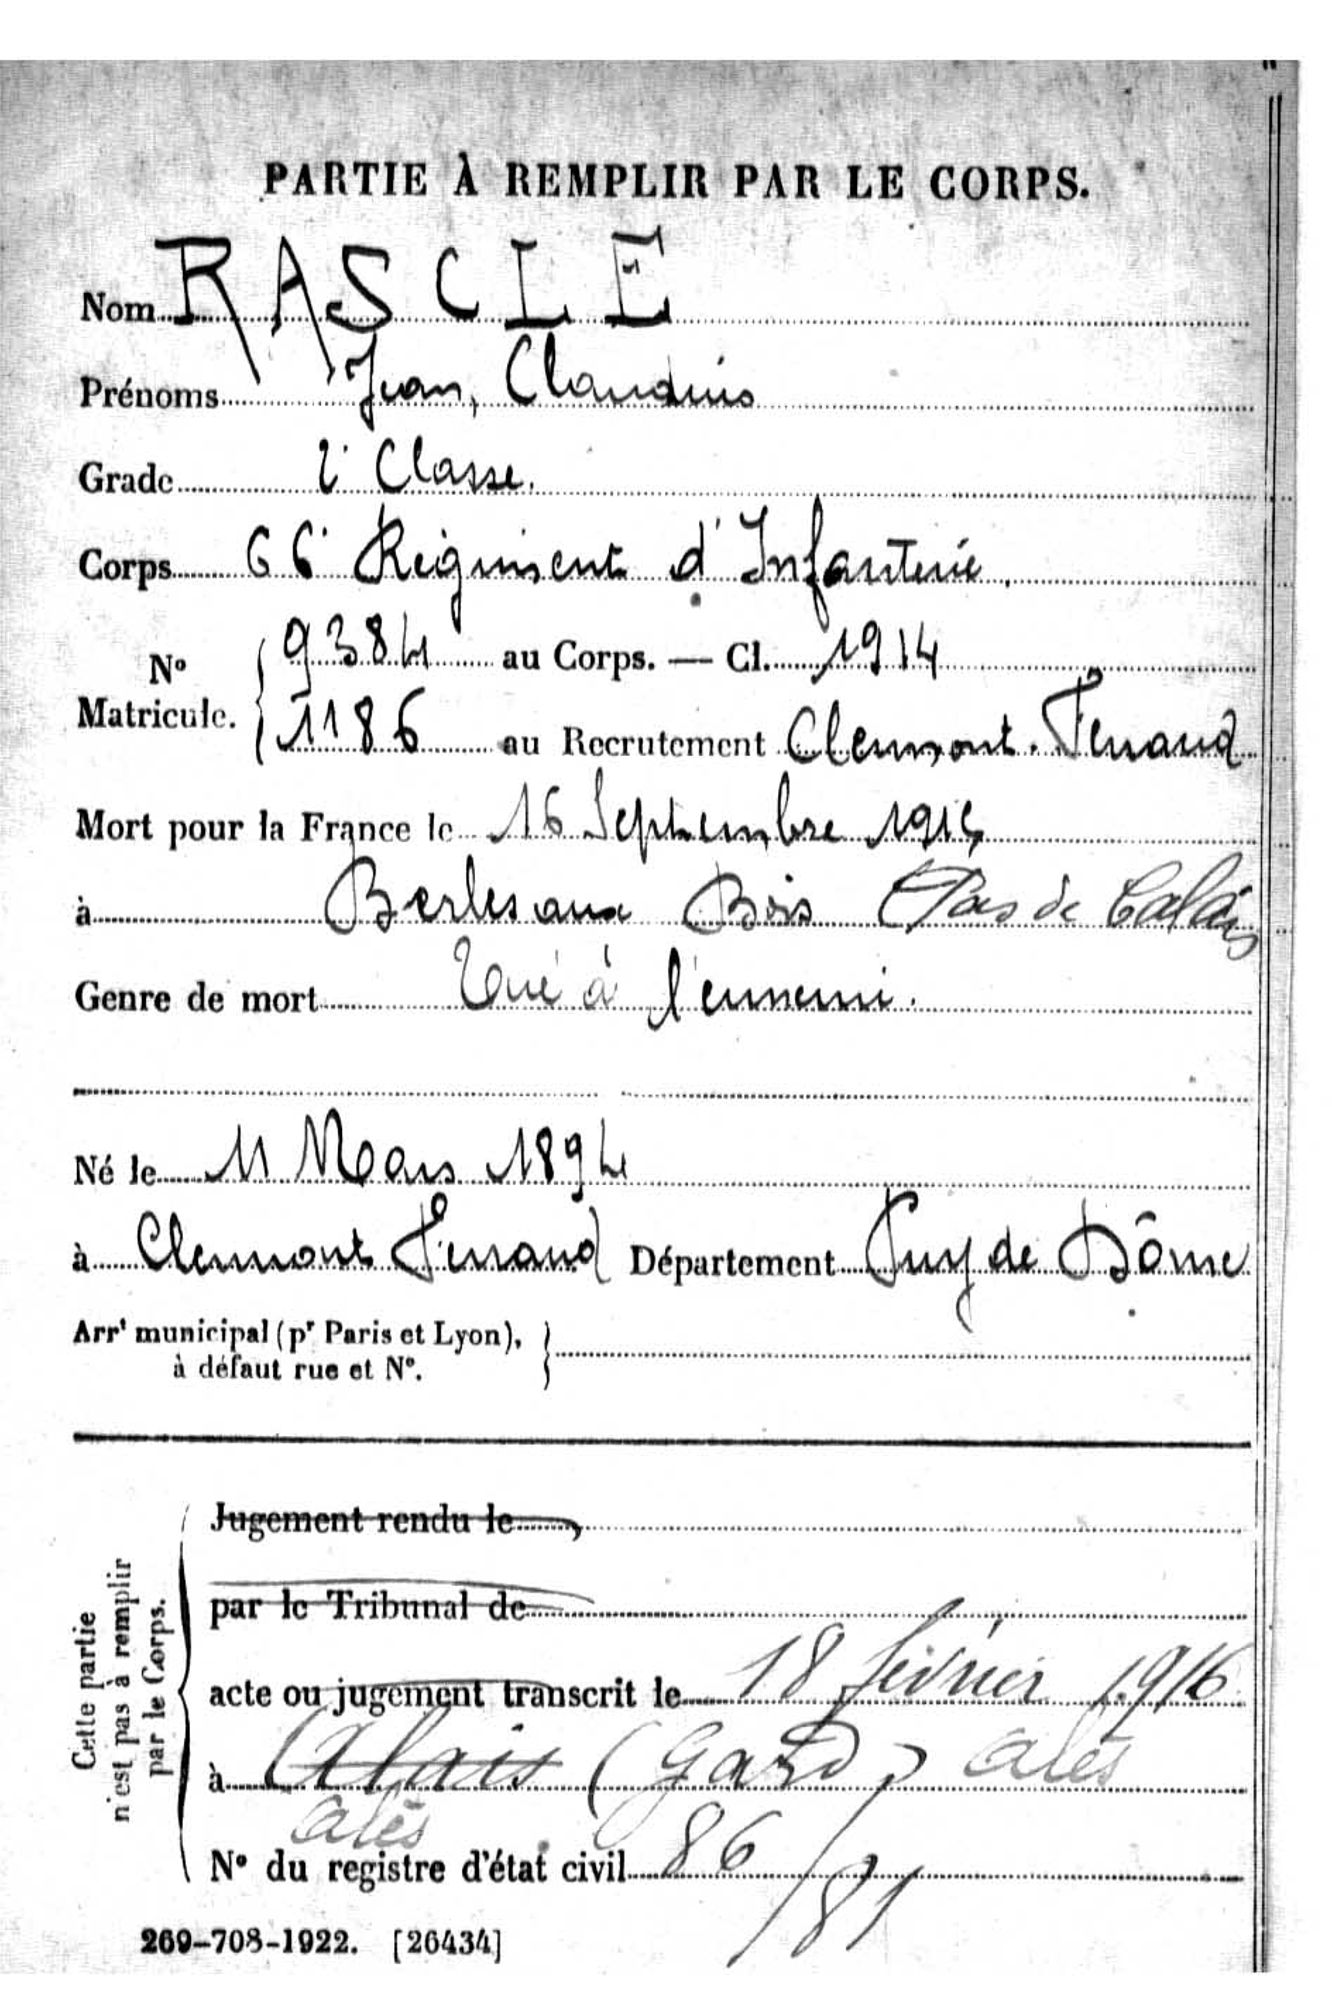 PARTIE À REMPLIR PAR LE CORPS.
Nom RASCLE
Prénoms Jean, Claudius
Grade 2e Classe.
Corps 66e Régiment d'Infanterie.
N° Matricule. 9384 au Corps. — Cl. 1914
1186 au Recrutement Clermont-Ferrand
Mort pour la France le 16 Septembre 1915
à Berles aux Bois Pas de Calais
Genre de mort Tué à l'ennemi.
Né le 11 Mars 1894
à Clermont Ferrand Département Puy de Dôme
Arrt municipal (pr Paris et Lyon),
à défaut rue et N°.
Cette partie
n'est pas à remplir
par le Corps.
Jugement rendu le
par le Tribunal de
acte ou jugement transcrit le 18 février 1916
à Alais (Gard) Alès
Alès
N° du registre d'état civil 86/81
269-708-1922. [26434]